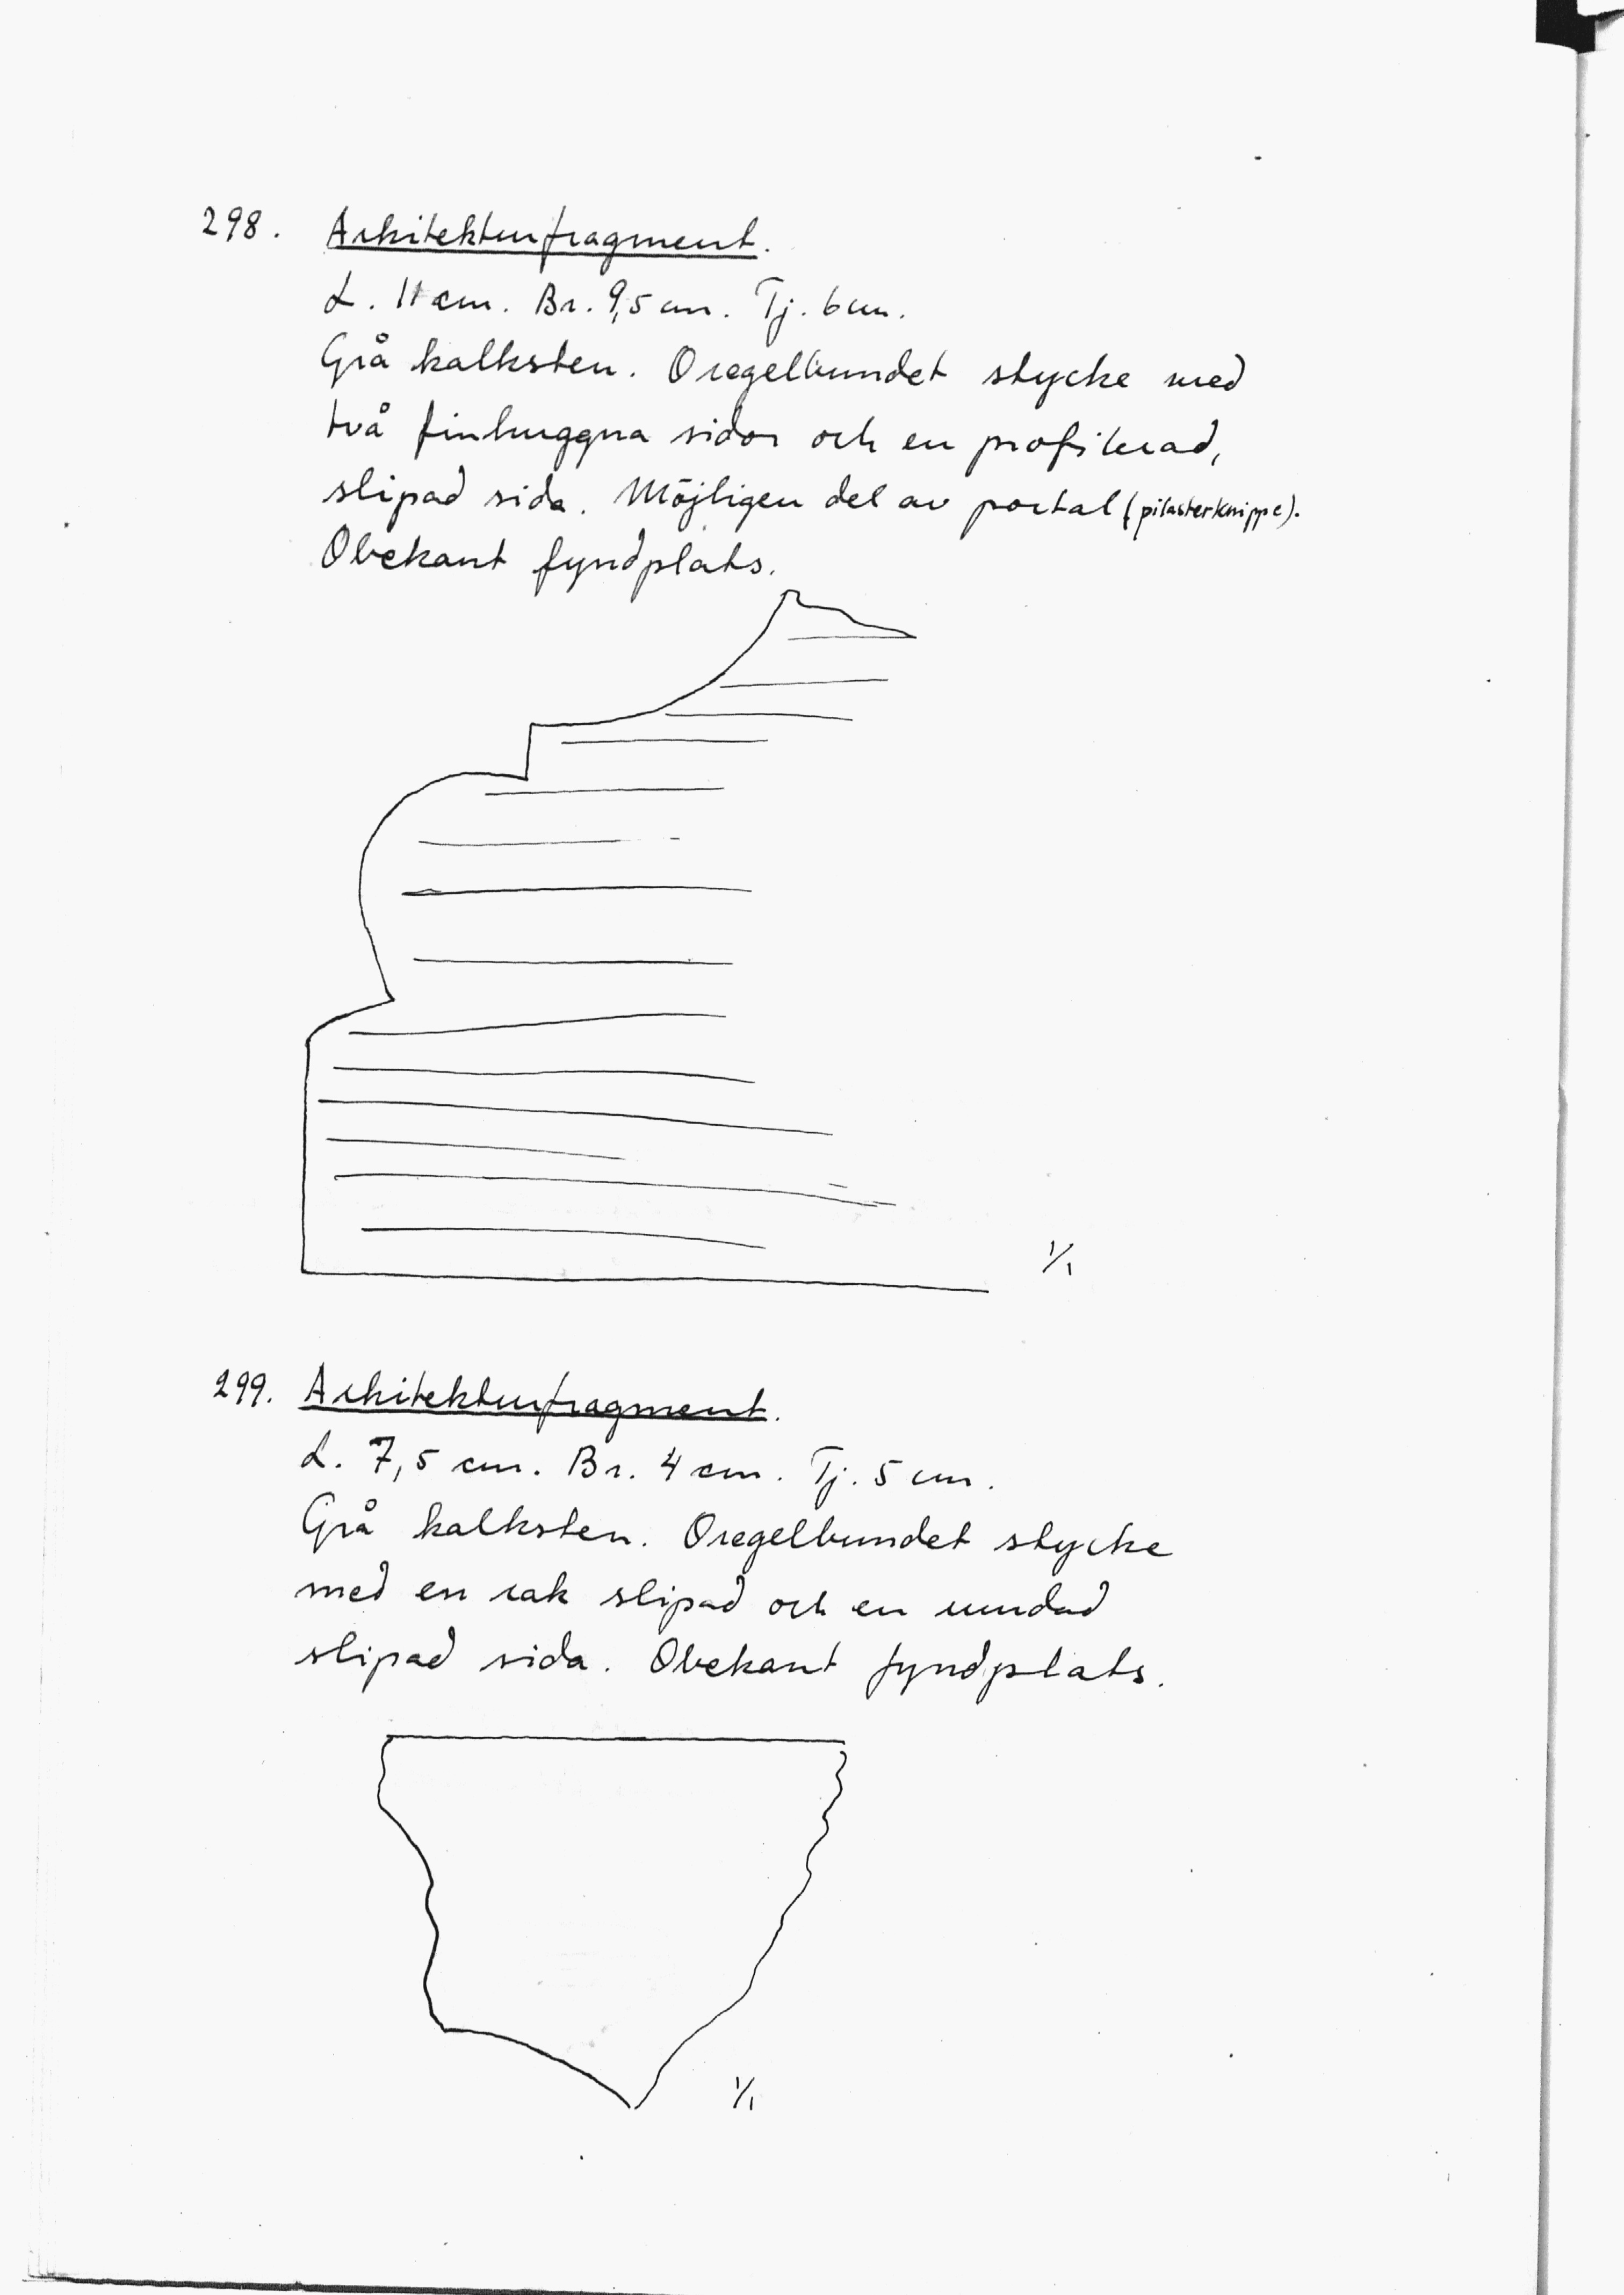 298. Arkitekturfragment.
L. 11 cm. Br. 9,5 cm. Tj. 6 cm.
Grå kalksten. Oregelbundet stycke med
två finhuggna sidor och en profilerad,
slipad sida. Möjligen del av portal (pilasterknippe).
Obekant fyndplats.
1/1
299. Arkitekturfragment.
L. 7,5 cm. Br. 4 cm. Tj. 5 cm.
Grå kalksten. Oregelbundet stycke
med en rak slipad och en rundad
slipad sida. Obekant fyndplats.
1/1